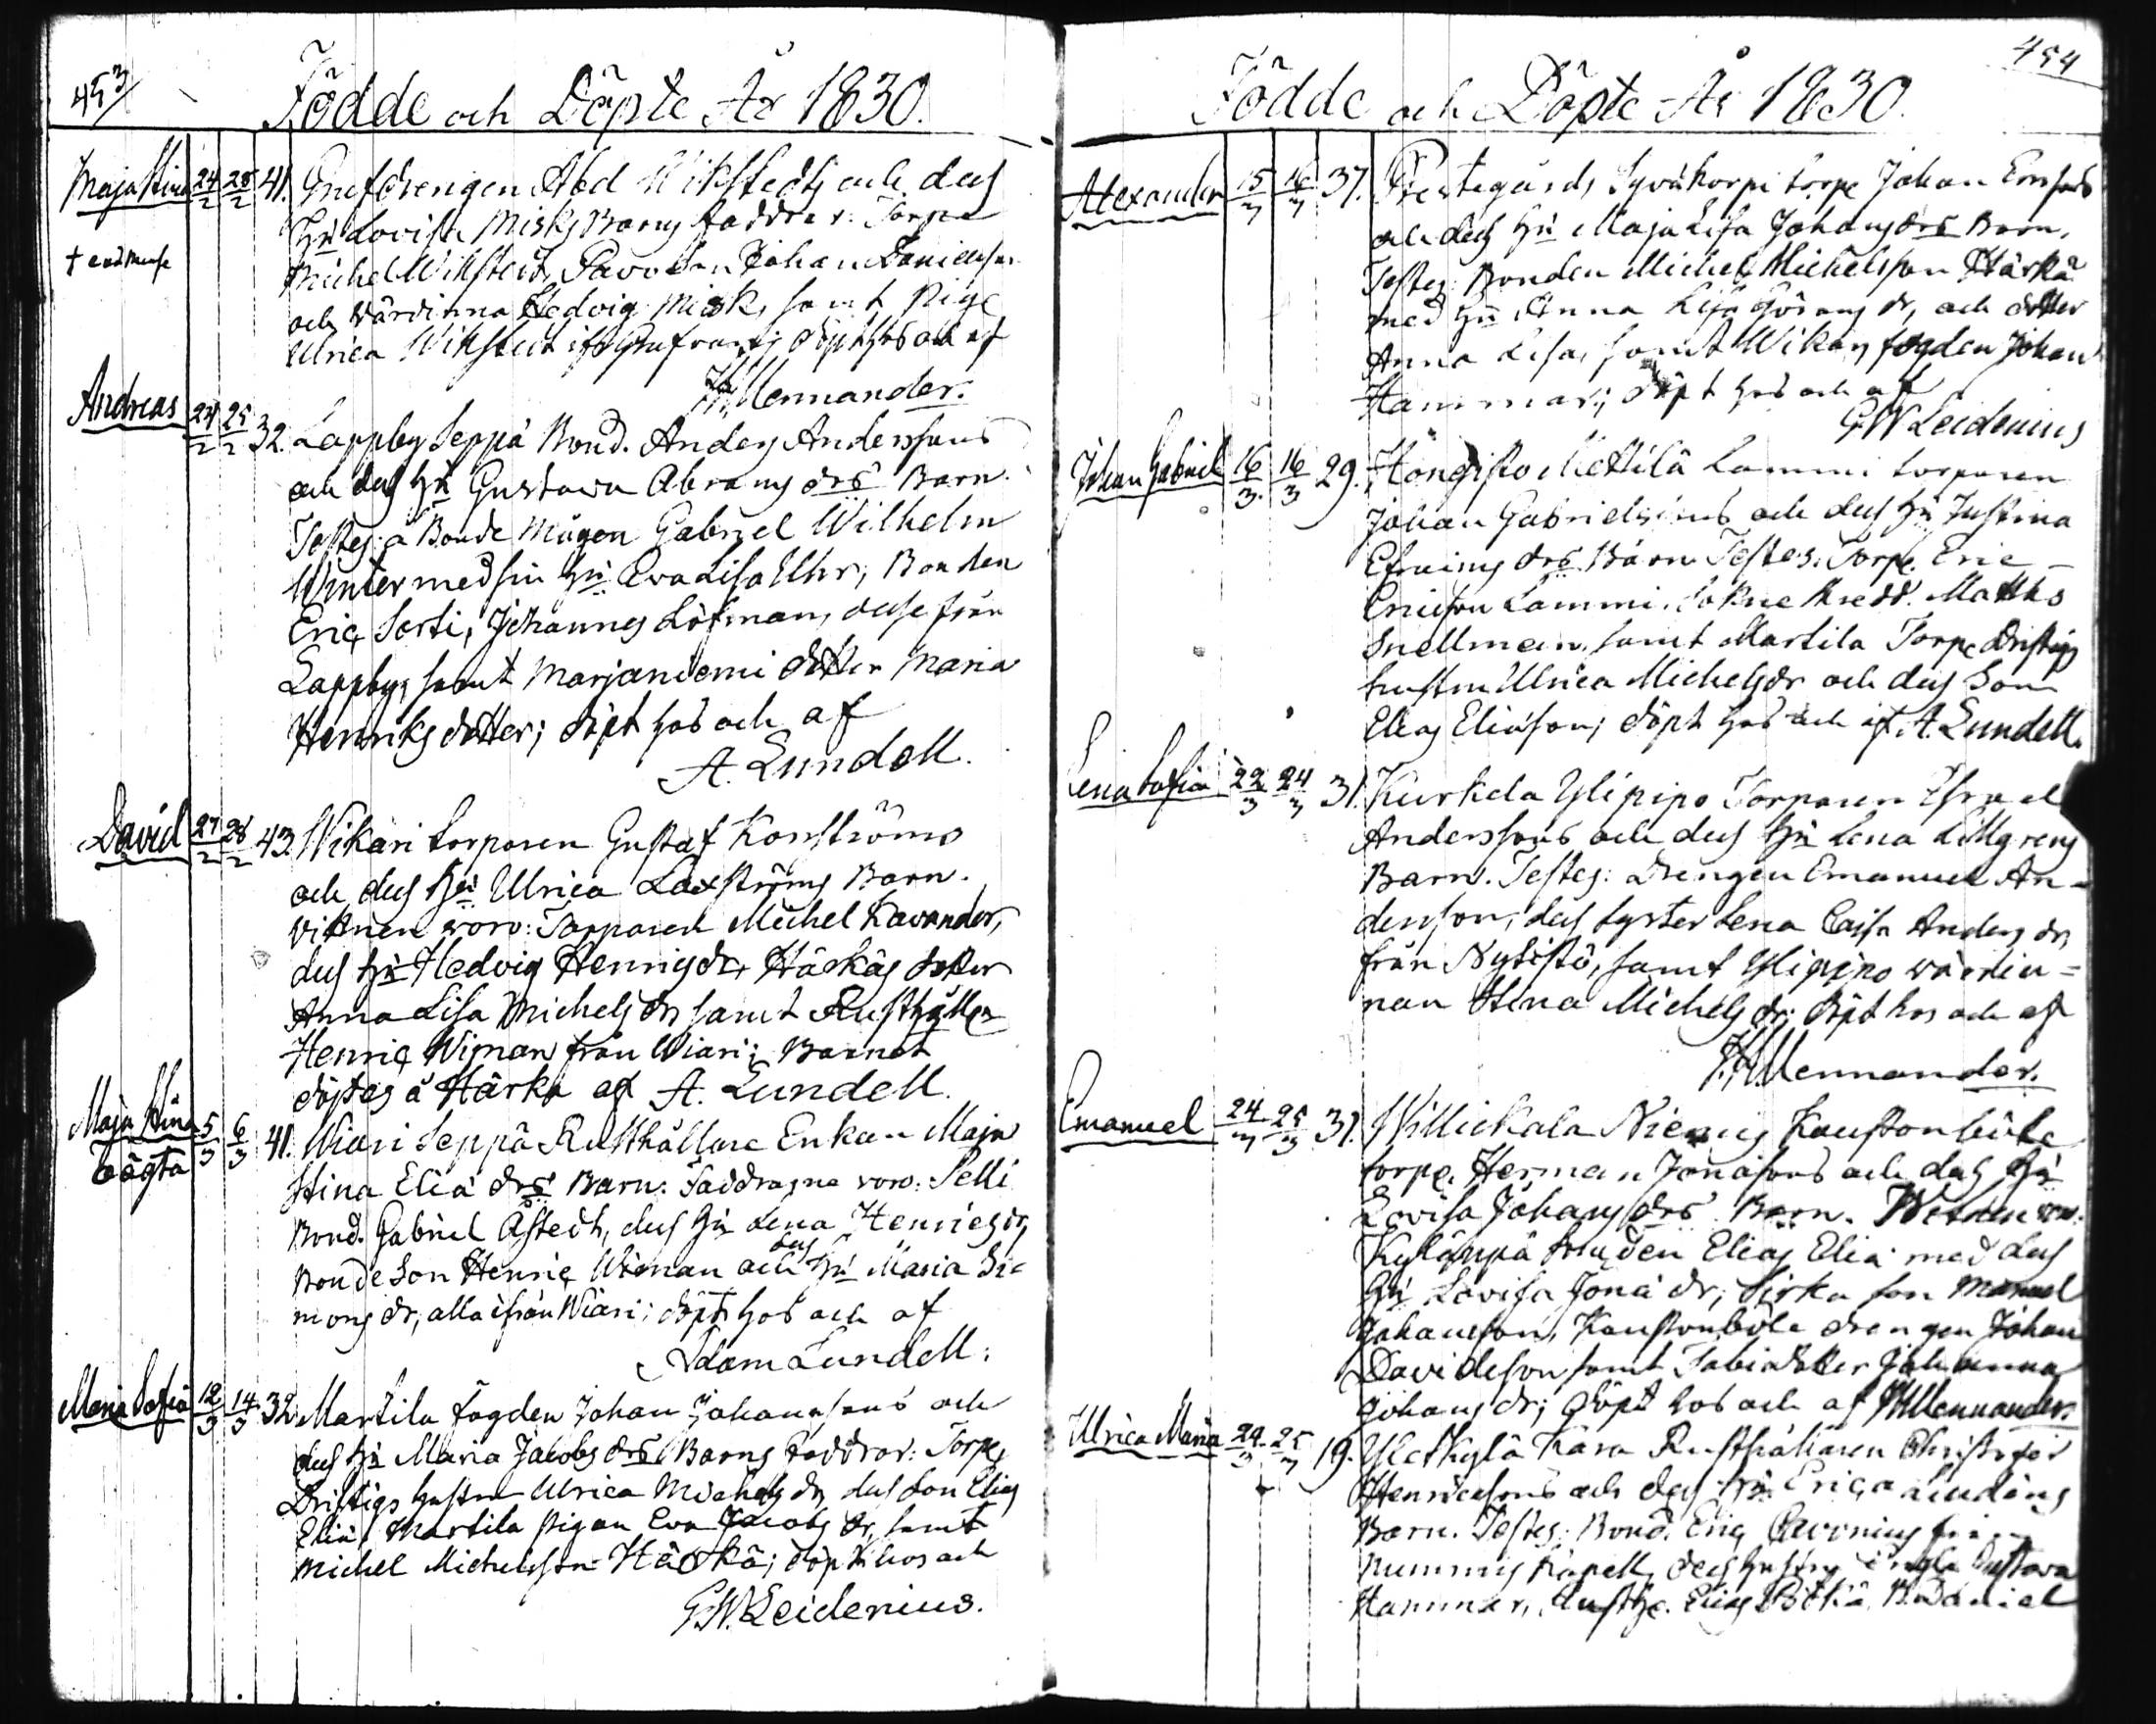 453
Födde och Döpte År 1830.
Maja Stina 24/2 28/2 41. Abel Wikstedts och dess
Hu Lovisa Misks Barns faddrar: Torpa
† eod mense
Michel Wikstedt, Johan Danielsson
och Värdinna Hedvig Misk, samt Piga
Ulrica Wikstedt döpt hos och af
Mennander.
Andreas 24/2 25/2 32. Lappby Seppä Bond. Anders Anderssons
och dess Hu Gustava Abrams drs Barn.
Testes: Bonde mågen Gabriel Wilhelm
Winter med sin Hu Eva Lisa Uhr; Bonden
Eric Sorti, Johannes Löfman, desse från
Lappby, samt Marjaniemi dotter Maria
Henriks dotter; döpt hos och af
A. Lundell.
David 27/2 28/2 43. Wikari torparen Gustaf Konströms
och dess Hu Ulrica Laxströms Barn.
Vittnen voro: Torparen Michel Kavander,
dess Hu Hedvig Henrigsdr, Härkäs dotter
Anna Lisa Michels dr samt Rusthållar
Henric Wiman från Wiari; Barnet
döptes å Härkä af A. Lundell.
Maja Stina 5/3 6/3 41. Wiari Seppä Rusthållare Enkan Maja
oägta
Stina Elia drs Barn. Faddrarne voro: Pelli
Bond. Gabriel Åstedt, dess Hu Lena Henricsdr,
Bonde Son Henric Wiman och dess Hu Maria Si-
mons dr, alla ifrån Wiari; döpt hos och af
Adam Lundell.
Maria Sofia 12/3 14/3 32. Martila fogden Johan Johanssons och
dess Hu Maria Jacobs drs Barns faddrar: Torps
Dristigs hustru Ulrica Michels dr dess Son Elias
Elias, Martila pigan Eva Jacobs dr, samt
Michel Michelsson Härkä; döpt hos och
G.W. Leidenius.
454
Födde och Döpte År 1830.
Alexander 15/3 16/3 37. Prestegårds Syväkorpi torp. Johan
och dess Hu Maja Lisa Johans drs Barn.
Testes: Bonden Michel Michelsson Härkä
med Hu Anna Lisa Görans dr, och dotter
Anna Lisa, samt Wikars fogden Johan
Hammar; döpt hos och af
G.W. Leidenius
Johan Gabriel 16/3 16/3 29. Hongisto Mettilä Lammi torparen
Johan Gabrielssons och dess Hu Justina
Efraims drs Barn. Testes: Torp. Eric
Ericsson Lammi, Matths
Snellman, samt Martila Torp. Dristigs
hustru Ulrica Michelsdr och dess Son
Elias Eliasson; döpt hos och af A. Lundell.
Lena Sofia 22/3 24/3 31. Kurkela Ylipipo Torparen Israel
Anderssons och dess Hu Lena Lillgrens
Barn. Testes: Drengen Emanuel An-
dersson, dess syster Lena Caisa Anders dr,
från Nybistö, samt Ylipipo värdin-
nan Stina Michels dr; döpt hos och af
Mennander.
Emanuel 24/3 25/3 31. Willickala Niemis
torp. Herman Jonassons och dess Hu
Lovisa Johans drs Barn. Vittnen voro:
Elias Elia med dess
Hu Lovisa Jona dr, Sirka son Manuel
Johansson, drengen Johan
Davidsson samt dotter Johanna
Johans dr; döpt hos och af Mennander.
Ulrica Maria 24/3 25/3 19. Ylekylä Kära Rusthållaren Christofer
Henricssons och dess Hu Erica Lindéns
Barn. Testes: Bond. Eric från
Nummis Kapell, dess hustru Gustava
Hammar, Elias